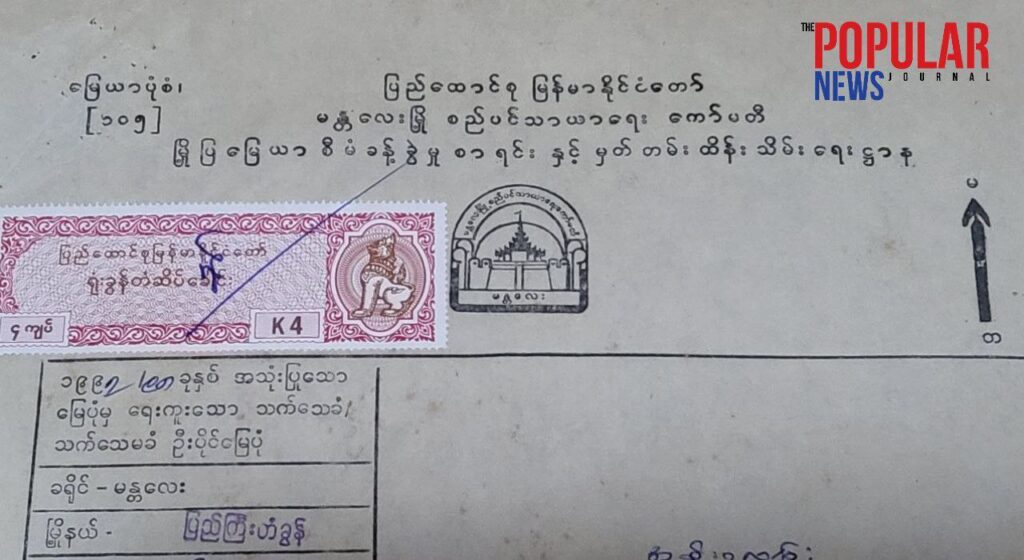 THE
POPULAR
NEWS JOURNAL
မြေယာပုံစံ၊
[၁၀၅]
ပြည်ထောင်စု မြန်မာနိုင်ငံတော်
မန္တလေးမြို့ စည်ပင်သာယာရေး ကော်မတီ
မြို့ပြ မြေယာ စီမံခန့်ခွဲမှု စာရင်း နှင့် မှတ်တမ်းထိန်းသိမ်းရေးဌာန
ပြည်ထောင်စုမြန်မာနိုင်ငံတော်
ရုံးခွန်တံဆိပ်ခေါင်း
၄ ကျပ်
K 4
မန္တလေးမြို့စည်ပင်သာယာရေးကော်မတီ
မန္တလေး
မ
တ
ခုနှစ် အသုံးပြုသော
မြေပုံမှ ရေးကူးသော သက်သေခံ/
သက်သေမခံ ဦးပိုင်မြေပုံ
ခရိုင် – မန္တလေး
မြို့နယ် - ပြည်ကြီးတံခွန်